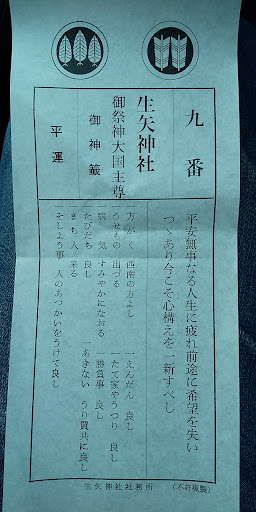 九番
生矢神社
御祭神大国主尊
御神籤
平運
平安無事なる人生に疲れ前途に希望を失い
つゝあり今こそ心構えを一新すべし
一方がく 西南の方よし
一うせもの 出づる
一病気 すみやかになおる
一たびだち 良し
一まち人 来る
一そしよう事 人のあつかいをうけて良し
一えんだん 良し
一たて家やうつり 良し
一勝負事 良し
一あきない うり買共に良し
生矢神社社務所
(不許複製)